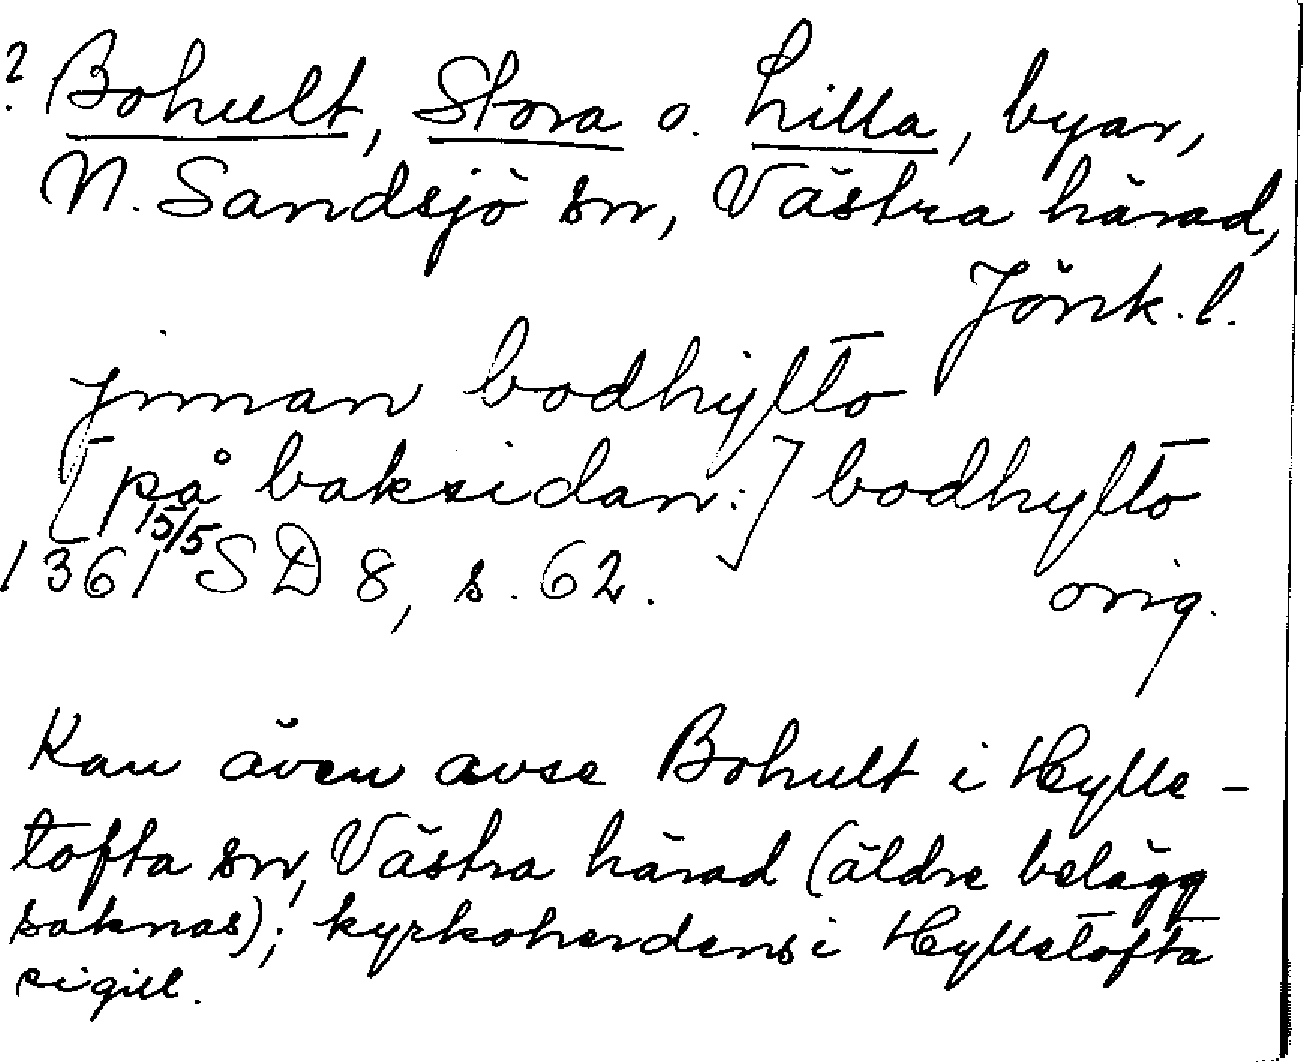 ? Bohult, Stora o. Lilla, byar,
N. Sandsjö sn, Västra härad,
Jönk. l.
jnnan bodhylto
[på baksidan:] bodhylto
1361 15/5 SD 8, s. 62. orig.
Kan även avse Bohult i Hylle-
tofta sn, Västra härad (äldre belägg
saknas); kyrkoherdens i Hylletofta
sigill.